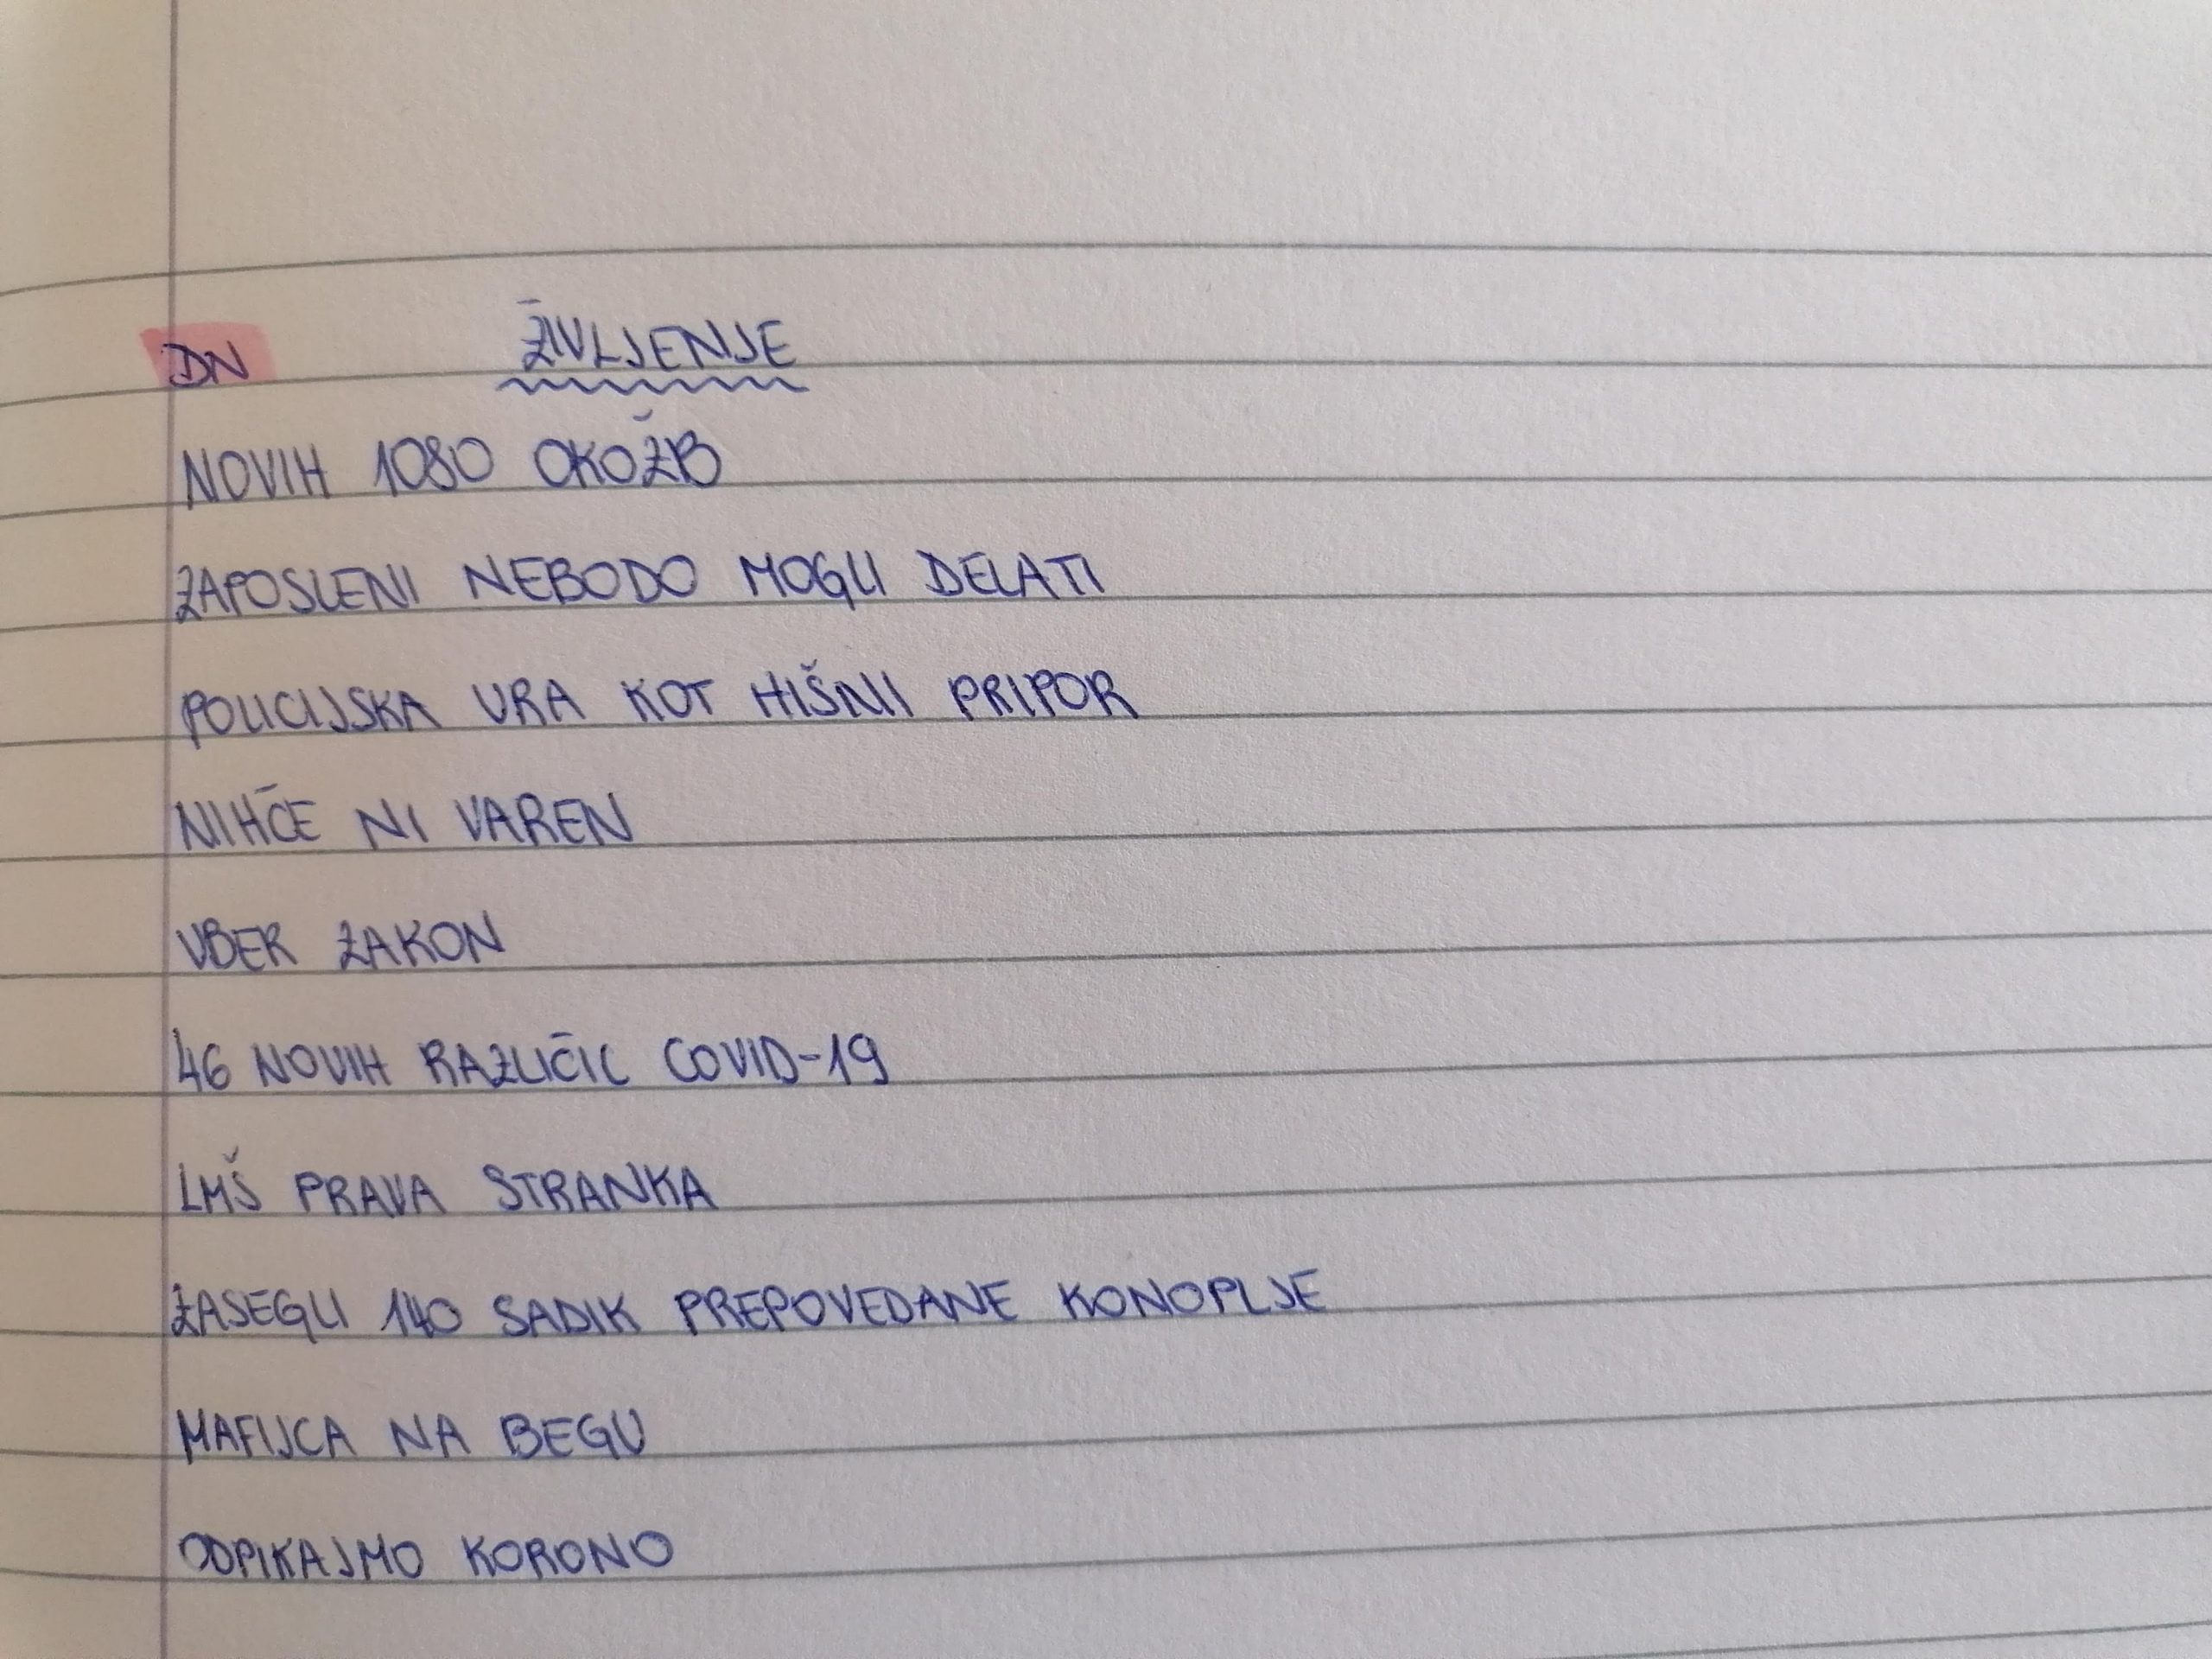 DN ŽIVLJENJE
NOVIH 1080 OKOŽB
ZAPOSLENI NEBODO MOGLI DELATI
POLICIJSKA URA KOT HIŠNII PRIPOR
NIHČE NI VAREN
UBER ZAKON
46 NOVIH RAZLIČIC COVID-19
LMŠ PRAVA STRANKA
ZASEGLI 140 SADIK PREPOVEDANE KONOPLJE
MAFIJCA NA BEGU
ODPIKAJMO KORONO